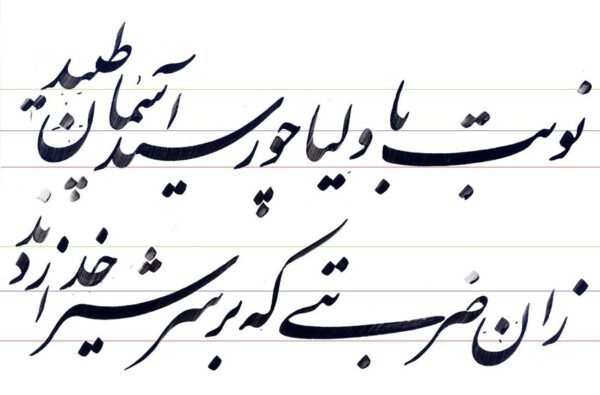 نوبت با ولیا چو رسید آسمان طپید
زان ضربتی که بر سر شیر خدا زدند